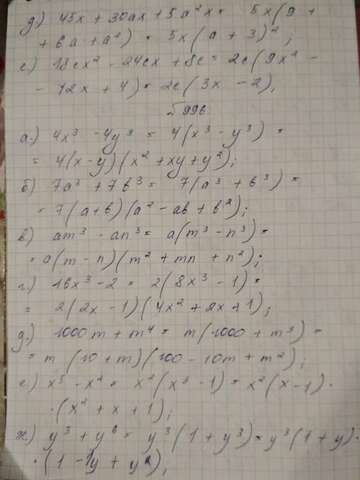 д) 45x + 30ax + 5a²x = 5x(9 +
+ 6a + a²) = 5x(a + 3)²;
е) 18cx² - 24cx + 8c = 2c(9x² -
- 12x + 4) = 2c(3x - 2),
№996.
а) 4x³ - 4y³ = 4(x³ - y³) =
= 4(x-y)(x² + xy + y²);
б) 7a³ + 7b³ = 7(a³ + b³) =
= 7(a+b)(a² - ab + b²);
в) am³ - an³ = a(m³ - n³) =
= a(m - n)(m² + mn + n²);
г) 16x³ - 2 = 2(8x³ - 1) =
= 2(2x - 1)(4x² + 2x + 1);
д) 1000m + m⁴ = m(1000 + m³) =
= m(10 + m)(100 - 10m + m²);
е) x⁵ - x² = x²(x³ - 1) = x²(x - 1)·
·(x² + x + 1);
ж) y³ + y⁶ = y³(1 + y³) = y³(1 + y)·
·(1 - y + y²),